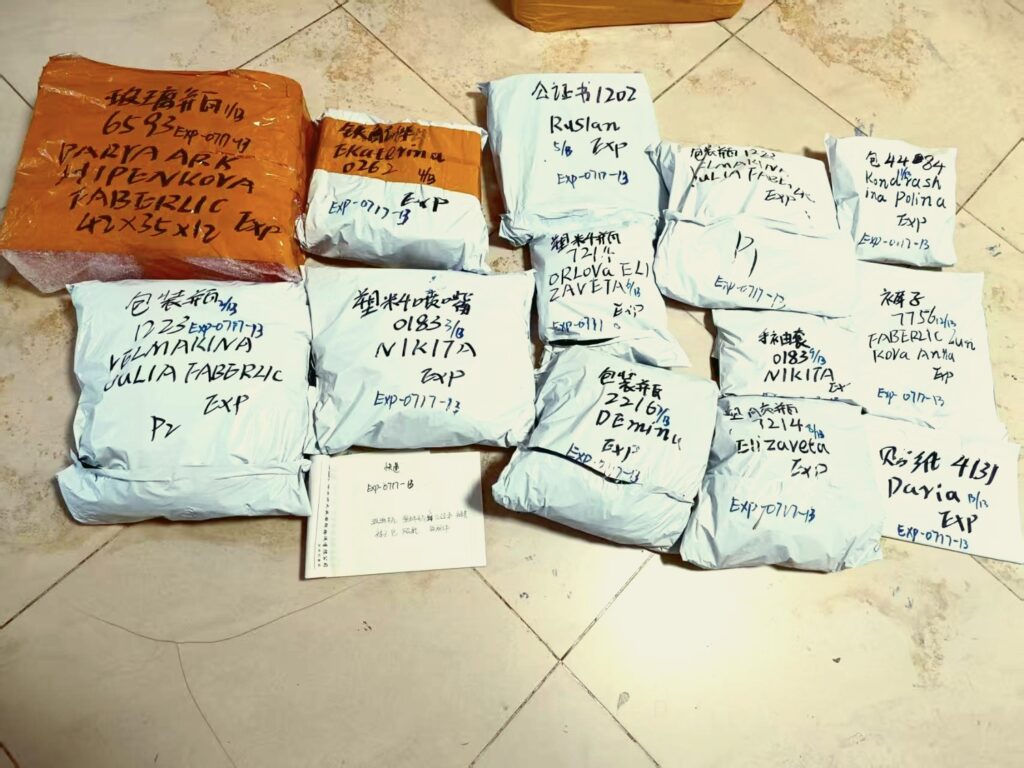 玻璃瓶 1/13
6593 Exp-0717-13
DARYA ARK
HIPENKOVA
FABERLIC
42×35×12 Exp
Ekaterina
0262 4/13
Exp
Exp-0717-13
公证书1202
Ruslan
5/13 Exp
Exp-0717-13
包装瓶 1223
JULIA FABERLIC
Exp
P1
Exp-0717-13
包 44 34
Kondrash
ina Polina
Exp
Exp-0717-13
包装瓶 2/13
1223 Exp-0717-13
VELMAKINA
JULIA FABERLIC
Exp
P2
塑料 喷嘴
0183 3/13
NIKITA
Exp
Exp-0717-13
快递
Exp-0717-13
塑料 瓶
721
ORLOVA ELI
ZAVETA 6/13
Exp
Exp-0717
包装瓶
2216 7/13
Demina
Exp
Exp-0717-13
0183 9/13
NIKITA
Exp
Exp-0717-13
塑 喷瓶
7214
Elizaveta
Exp
Exp-0717-13
裤子
7756 12/13
FABERLIC Lun
Kova Anna
Exp
Exp-0717-13
贴纸 4131
Daria 13/13
Exp
Exp-0717-13